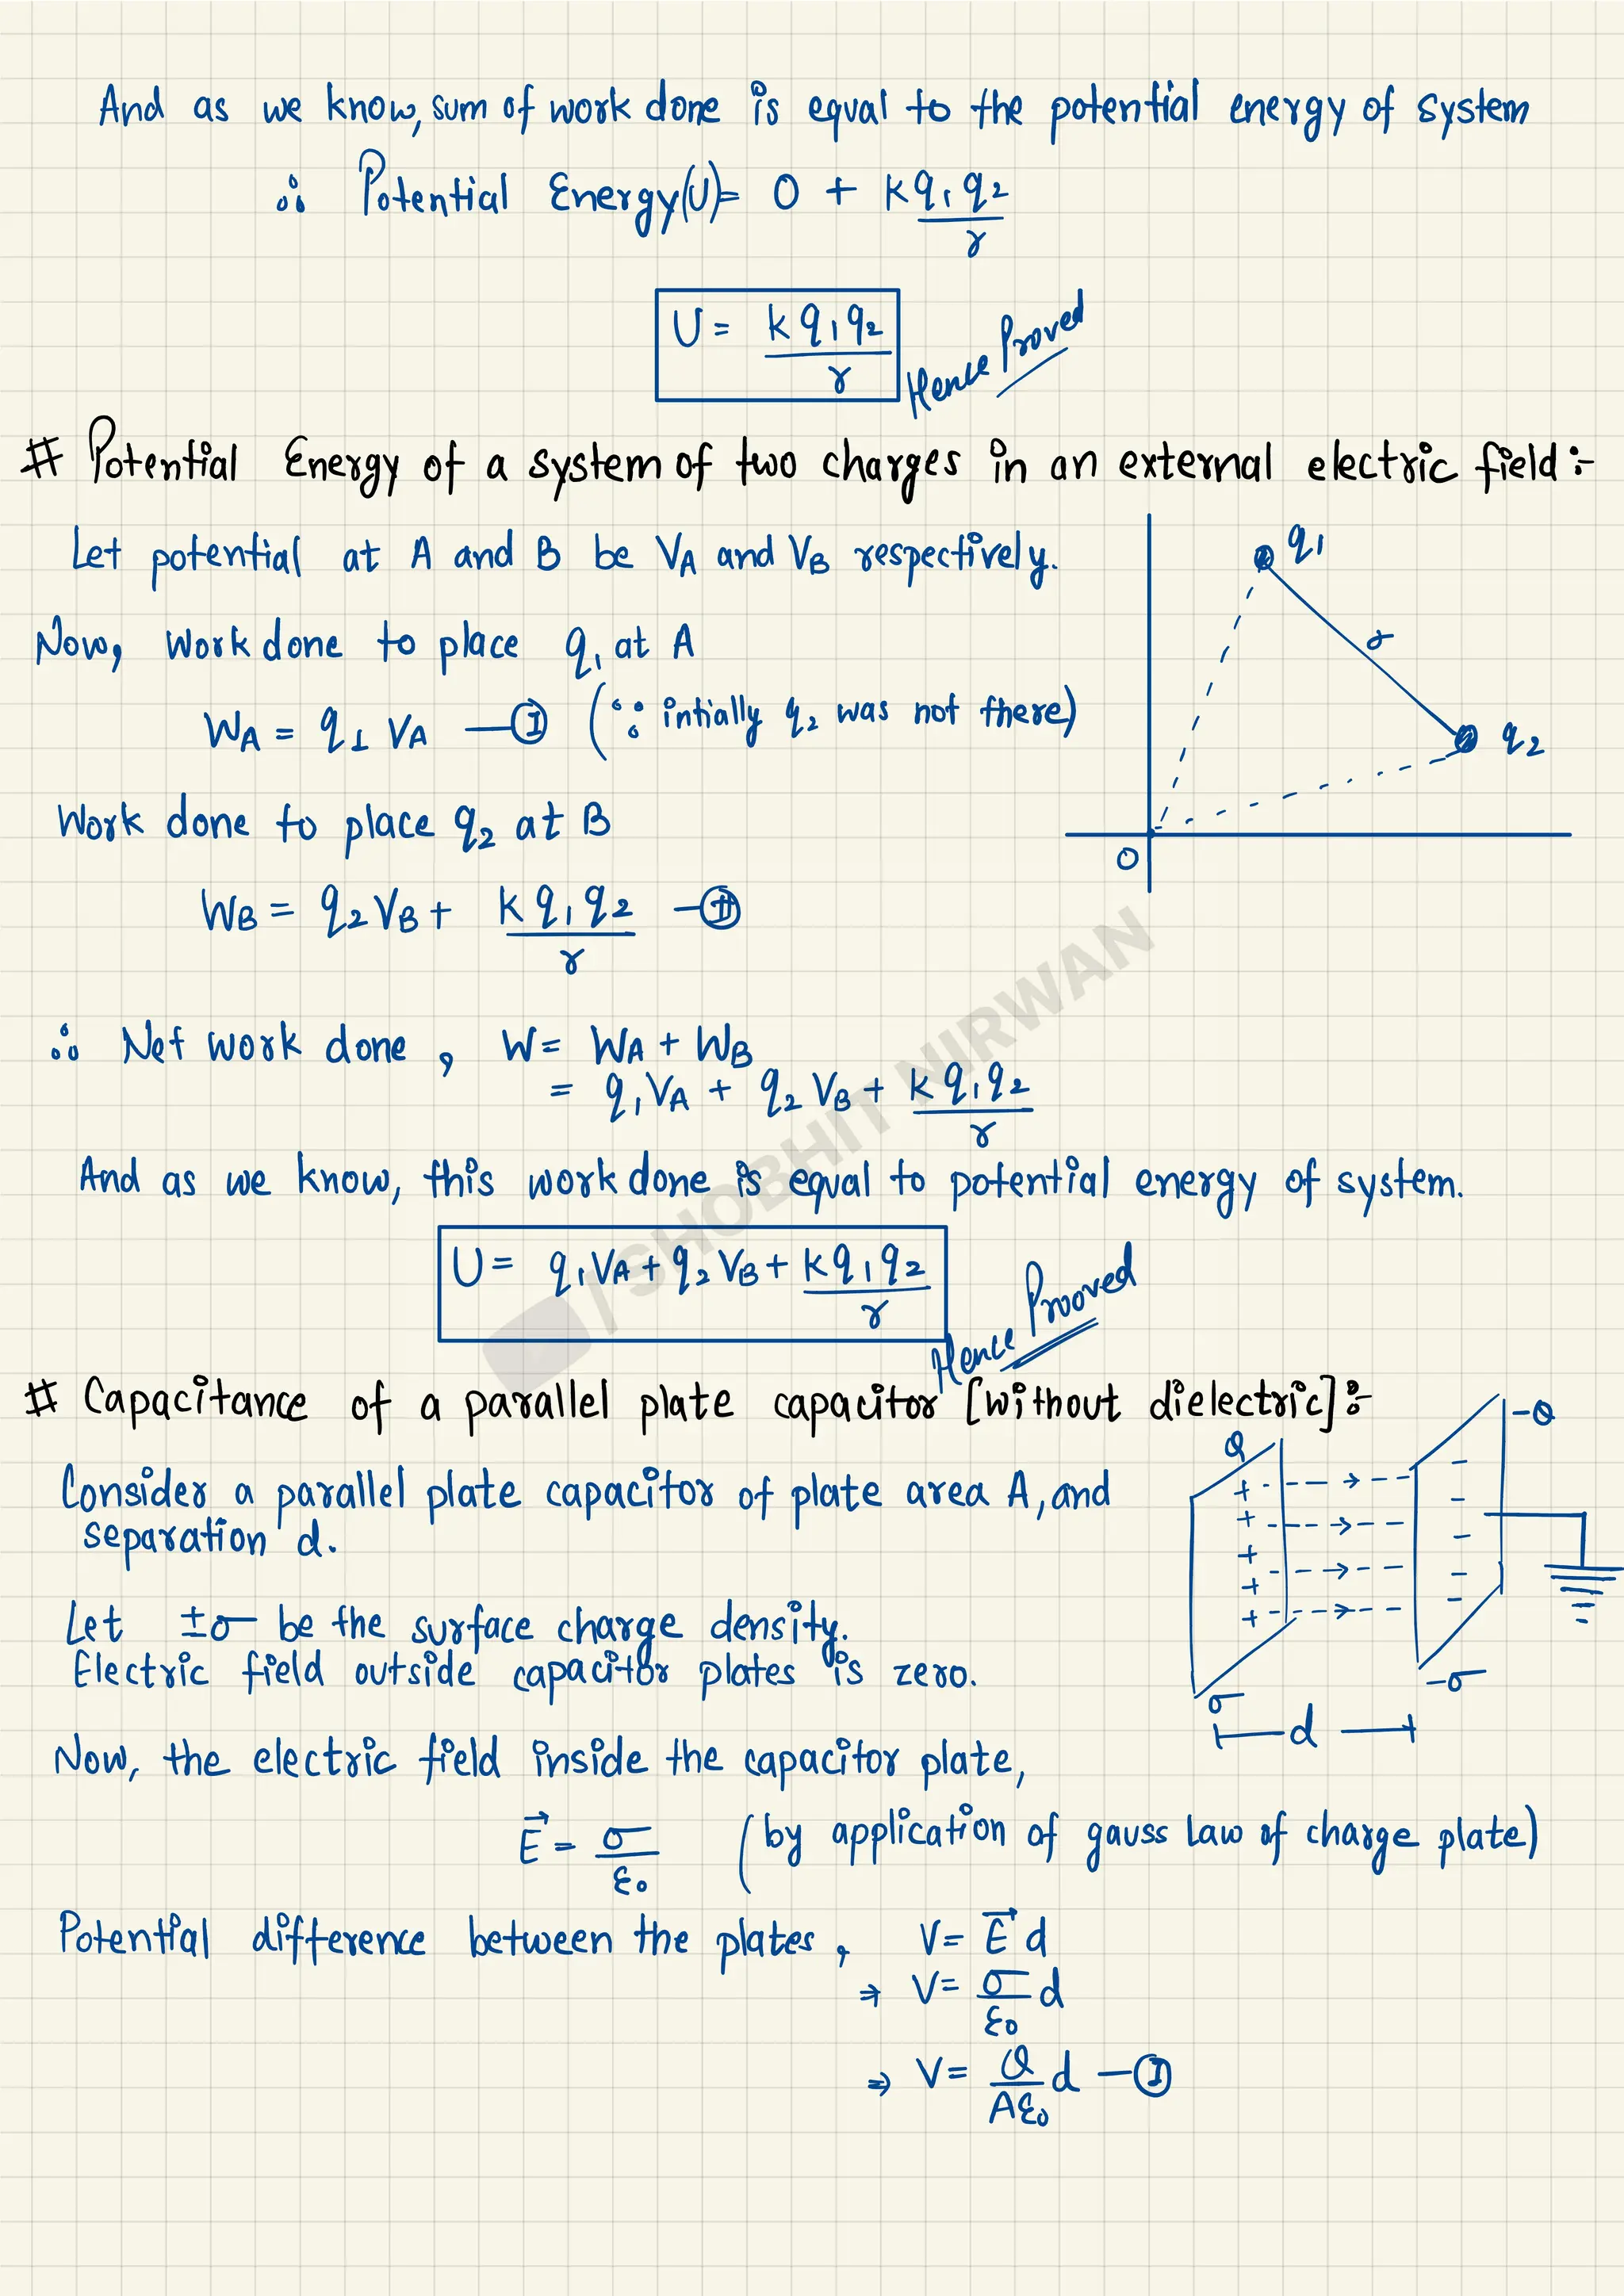 And as we know, sum of work done is equal to the potential energy of system
∴ Potential Energy(U)= 0 + kq₁q₂/r
U = kq₁q₂/r
Hence Proved
# Potential Energy of a system of two charges in an external electric field:-
Let potential at A and B be V_A and V_B respectively.
q₁
Now, work done to place q₁ at A
r
W_A = q₁ V_A —Ⓘ (∵ intially q₂ was not there)
q₂
Work done to place q₂ at B
O
W_B = q₂V_B + kq₁q₂/r —Ⅱ
∴ Net work done, W = W_A + W_B
= q₁V_A + q₂V_B + kq₁q₂/r
And as we know, this work done is equal to potential energy of system.
U = q₁V_A + q₂V_B + kq₁q₂/r
Hence Prooved
/SHOBHIT NIRWAN
# Capacitance of a parallel plate capacitor [without dielectric]:-
Q
-Q
Consider a parallel plate capacitor of plate area A, and
separation d.
Let ±σ be the surface charge density.
Electric field outside capacitor plates is zero.
σ
-σ
d
Now, the electric field inside the capacitor plate,
E⃗ = σ/ε₀ (by application of gauss law of charge plate)
Potential difference between the plates, V = E⃗ d
⇒ V = σ/ε₀ d
⇒ V = Q/Aε₀ d —Ⓘ